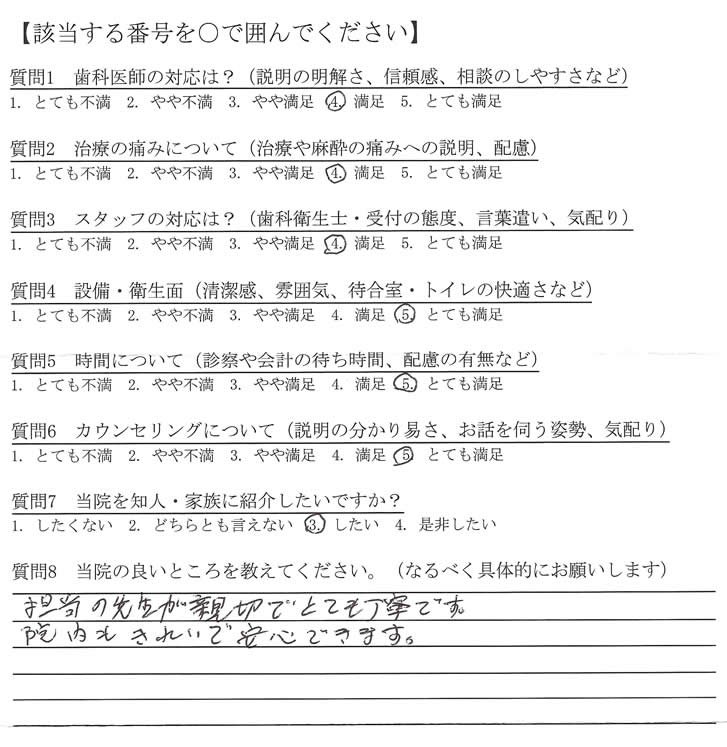 【該当する番号を○で囲んでください】
質問1　歯科医師の対応は？（説明の明解さ、信頼感、相談のしやすさなど）
1. とても不満　2. やや不満　3. やや満足　4. 満足　5. とても満足
質問2　治療の痛みについて（治療や麻酔の痛みへの説明、配慮）
1. とても不満　2. やや不満　3. やや満足　4. 満足　5. とても満足
質問3　スタッフの対応は？（歯科衛生士・受付の態度、言葉遣い、気配り）
1. とても不満　2. やや不満　3. やや満足　4. 満足　5. とても満足
質問4　設備・衛生面（清潔感、雰囲気、待合室・トイレの快適さなど）
1. とても不満　2. やや不満　3. やや満足　4. 満足　5. とても満足
質問5　時間について（診察や会計の待ち時間、配慮の有無など）
1. とても不満　2. やや不満　3. やや満足　4. 満足　5. とても満足
質問6　カウンセリングについて（説明の分かり易さ、お話を伺う姿勢、気配り）
1. とても不満　2. やや不満　3. やや満足　4. 満足　5 とても満足
質問7　当院を知人・家族に紹介したいですか？
1. したくない　2. どちらとも言えない　3. したい　4. 是非したい
質問8　当院の良いところを教えてください。（なるべく具体的にお願いします）
担当の先生が親切でとても丁寧です。
院内もきれいで安心できます。